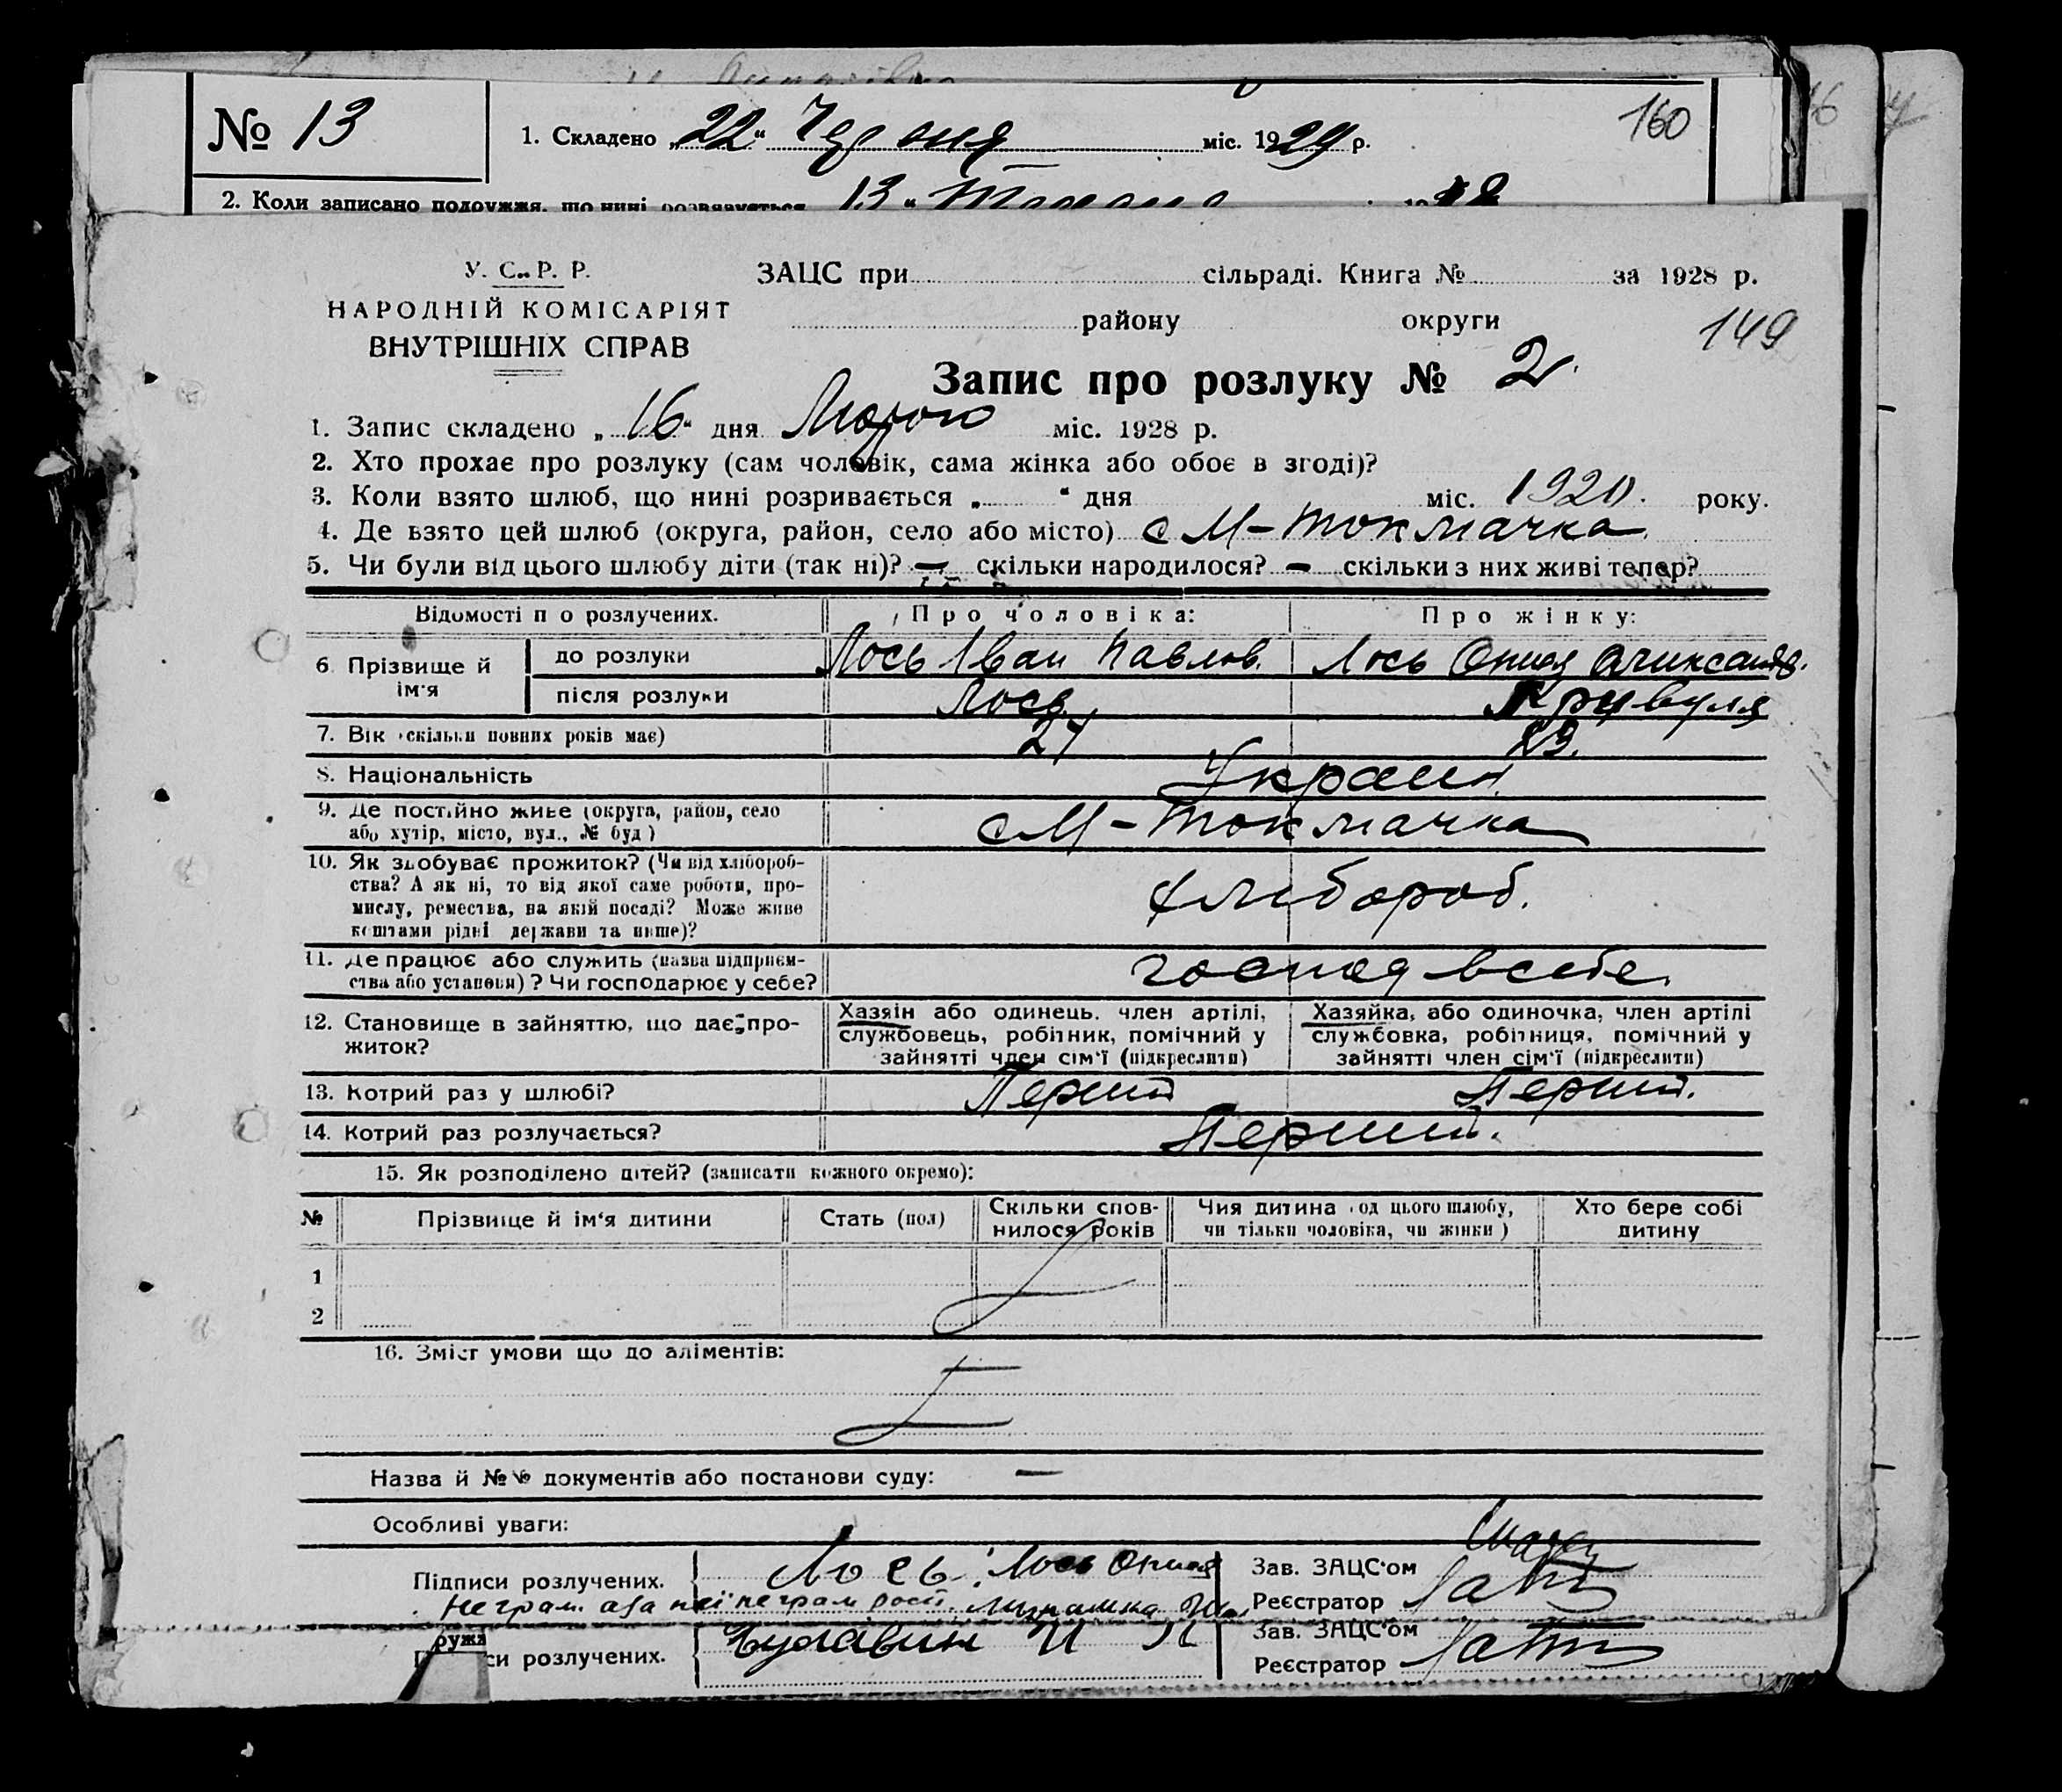 № 13
1. Складено „22“ Червня міс. 1929 р.
160
2. Коли записано подружжя, що нині розвязується 13 “
У. С. Р. Р.
НАРОДНІЙ КОМІСАРІЯТ
ВНУТРІШНІХ СПРАВ
ЗАЦС при сільраді. Книга № за 1928 р.
району округи
149
Запис про розлуку № 2.
1. Запис складено „16“ дня Лютого міс. 1928 р.
2. Хто прохає про розлуку (сам чоловік, сама жінка або обоє в згоді)?
3. Коли взято шлюб, що нині розривається „ “ дня міс. 1920. року.
4. Де взято цей шлюб (округа, район, село або місто) с М-Токмачка
5. Чи були від цього шлюбу діти (так ні)? — скільки народилося? — скільки з них живі тепер?
Відомості по розлучених. Про чоловіка: Про жінку:
6. Прізвище й ім'я
до розлуки Лось Іван Павлов. Лось Оришя Оликсандв.
після розлуки Лось Кривуля
7. Вік (скільки повних років має) 27 29.
8. Національність Украин.
9. Де постійно живе (округа, район, село
або хутір, місто, вул., № буд.) с М-Токмачка
10. Як здобуває прожиток? (Чи від хлібороб-
ства? А як ні, то від якої саме роботи, про-
мислу, ремества, на якій посаді? Може живе
коштами рідні держави та инше)?
хлибороб.
11. Де працює або служить (назва підприєм-
ства або установи)? Чи господарює у себе?
господ в себе.
12. Становище в зайняттю, що дає про-
житок?
Хазяїн або одинець, член артілі,
службовець, робітник, помічний у
зайнятті член сім'ї (підкреслити)
Хазяйка, або одиночка, член артілі
службовка, робітниця, помічний у
зайнятті член сім'ї (підкреслити)
13. Котрий раз у шлюбі? Перший Перший.
14. Котрий раз розлучається? Перший.
15. Як розподілено дітей? (записати кожного окремо):
№ Прізвище й ім'я дитини Стать (пол) Скільки спов-
нилося років Чия дитина (од цього шлюбу,
чи тільки чоловіка, чи жінки) Хто бере собі
дитину
1
2
16. Зміст умови що до аліментів:
Назва й №№ документів або постанови суду: —
Особливі уваги:
Підписи розлучених. Лось. Лось
Зав. ЗАЦС'ом
Реєстратор
Неграм. а за неї неграм росп.
си розлучених.
Зав. ЗАЦС'ом
Реєстратор